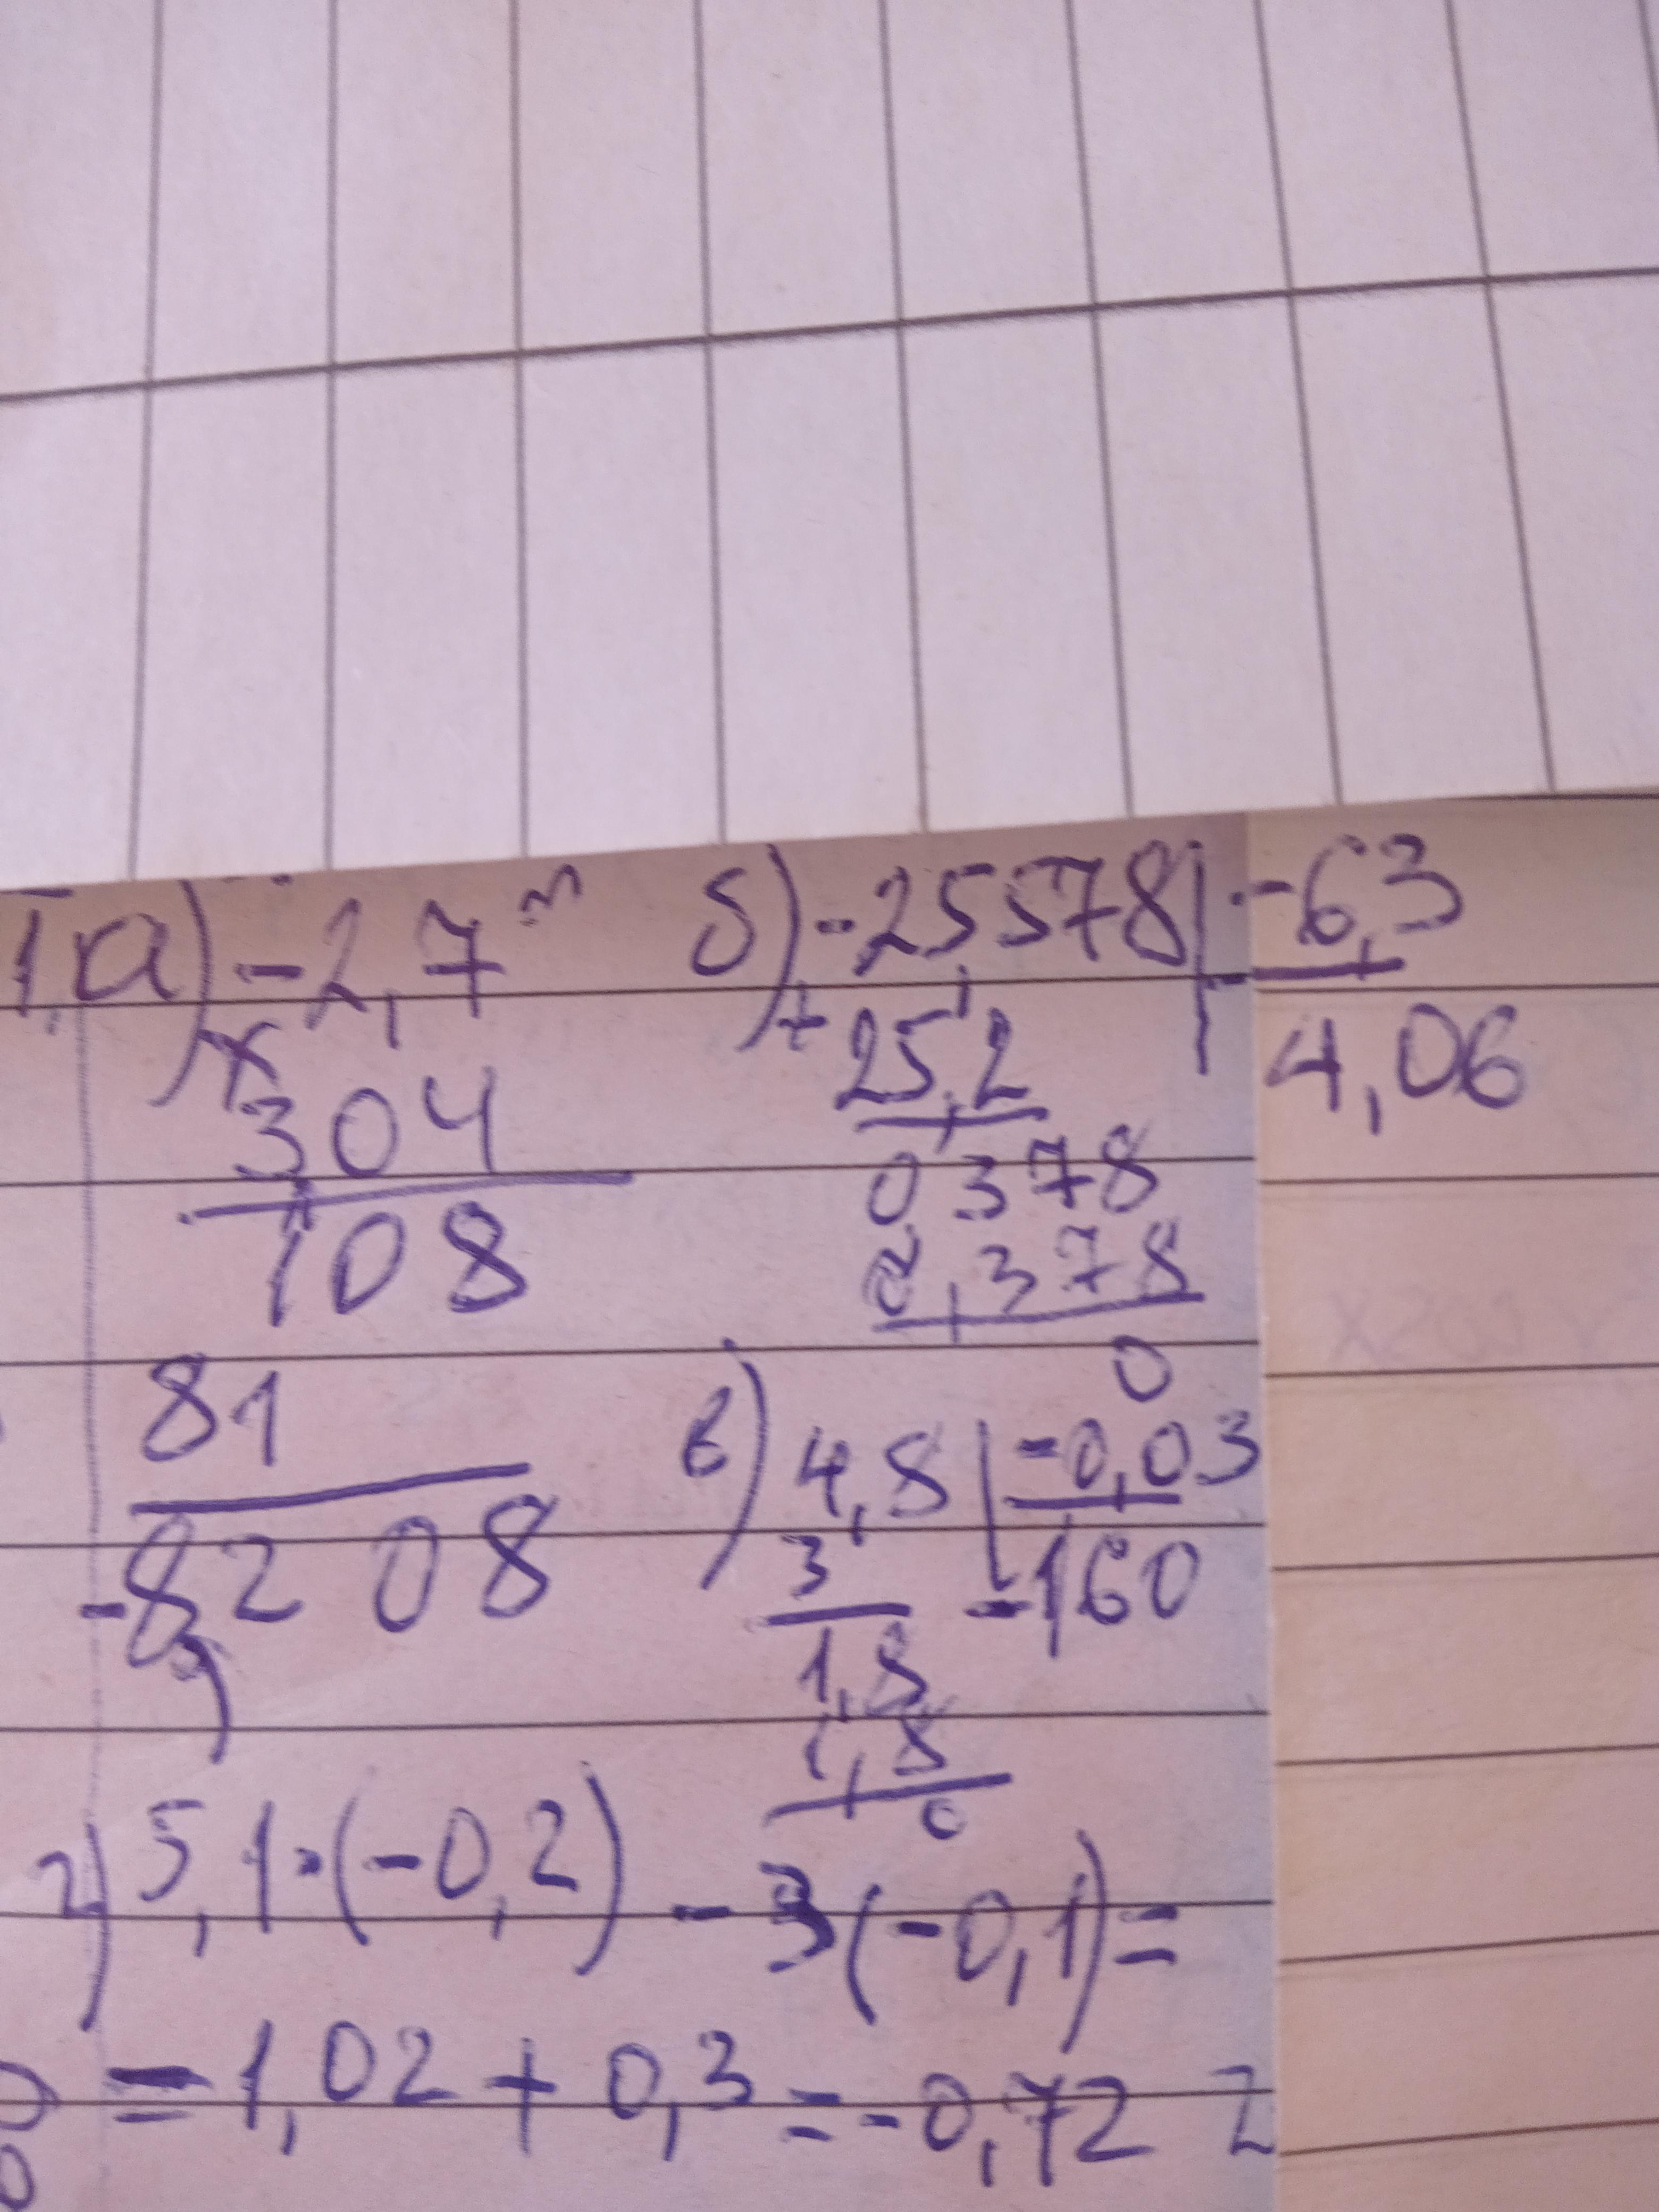 1. а) -2,7
× 3,04
108
81
-8,208
б) -25,578 | -6,3
25,2 4,06
0,378
0,378
0
в) 4,8 | -0,03
3 -160
1,8
1,8
0
г) 5,1·(-0,2) - 3(-0,1)=
= 1,02 + 0,3 = -0,72